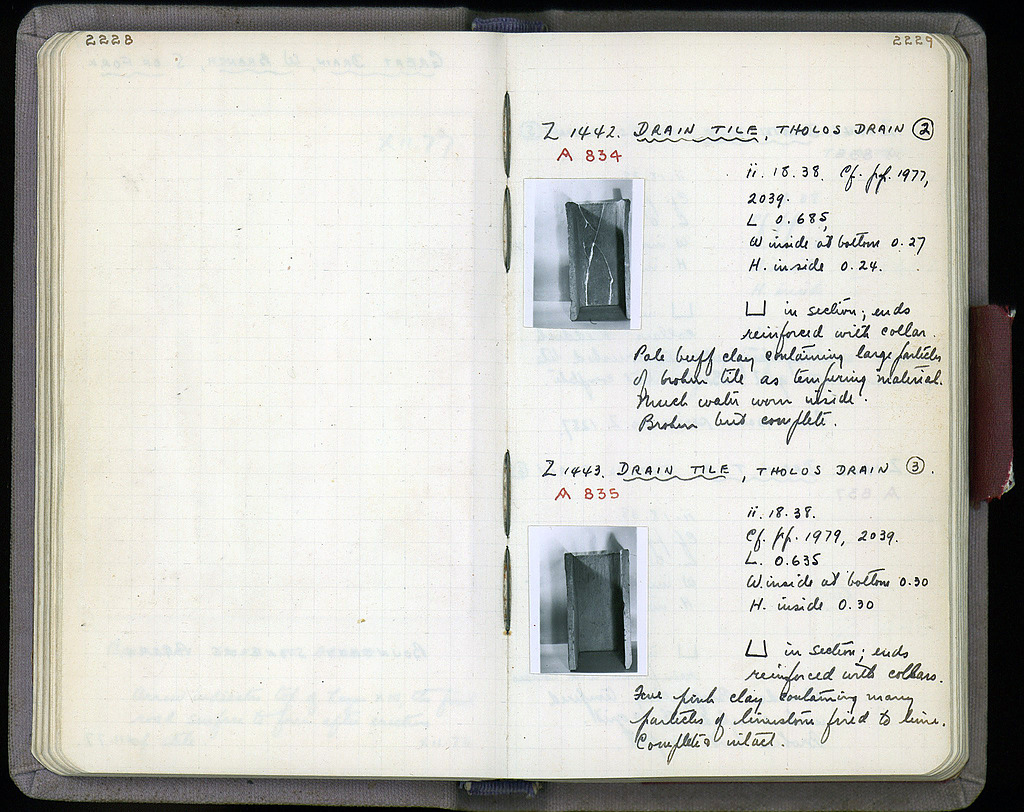 2228
2229
Z 1442. DRAIN TILE, THOLOS DRAIN ②
A 834
ii. 18. 38. Cf. pp. 1977,
2039.
L 0.685,
W inside at bottom 0.27
H. inside 0.24.
in section; ends
reinforced with collar.
Pale buff clay containing large particles
of broken tile as tempering material.
Much water worn inside.
Broken but complete.
Z 1443. DRAIN TILE, THOLOS DRAIN ③.
A 835
ii. 18. 38.
Cf. pp. 1979, 2039.
L. 0.635
W. inside at bottom 0.30
H. inside 0.30
in section; ends
reinforced with collars.
Fine pink clay containing many
particles of limestone fired to lime.
Complete & intact.